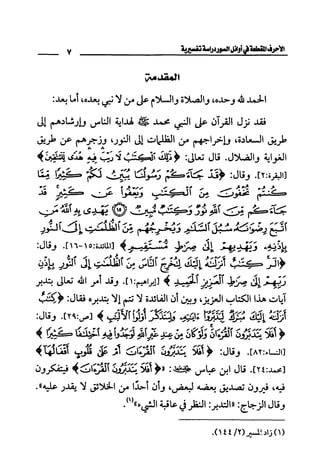 الأحرف المقطعة في أوائل السور دراسة تفسيرية ٧
المقدمة
الحمد لله وحده، والصلاة والسلام على من لا نبي بعده، أما بعد:
فقد نزل القرآن على النبي محمد ﷺ لهداية الناس وإرشادهم إلى
طريق السعادة، وإخراجهم من الظلمات إلى النور، وزجرهم عن طريق
الغواية والضلال. قال تعالى: ﴿ذَٰلِكَ ٱلْكِتَٰبُ لَا رَيْبَ فِيهِ هُدًى لِّلْمُتَّقِينَ﴾
[البقرة:٢]. وقال: ﴿قَدْ جَآءَكُمْ رَسُولُنَا يُبَيِّنُ لَكُمْ كَثِيرًا مِّمَّا
كُنتُمْ تُخْفُونَ مِنَ ٱلْكِتَٰبِ وَيَعْفُوا۟ عَن كَثِيرٍ قَدْ
جَآءَكُم مِّنَ ٱللَّهِ نُورٌ وَكِتَٰبٌ مُّبِينٌ (١٥) يَهْدِى بِهِ ٱللَّهُ مَنِ
ٱتَّبَعَ رِضْوَٰنَهُۥ سُبُلَ ٱلسَّلَٰمِ وَيُخْرِجُهُم مِّنَ ٱلظُّلُمَٰتِ إِلَى ٱلنُّورِ
بِإِذْنِهِۦ وَيَهْدِيهِمْ إِلَىٰ صِرَٰطٍ مُّسْتَقِيمٍ﴾ [المائدة:١٥-١٦]. وقال:
﴿الٓر كِتَٰبٌ أَنزَلْنَٰهُ إِلَيْكَ لِتُخْرِجَ ٱلنَّاسَ مِنَ ٱلظُّلُمَٰتِ إِلَى ٱلنُّورِ بِإِذْنِ
رَبِّهِمْ إِلَىٰ صِرَٰطِ ٱلْعَزِيزِ ٱلْحَمِيدِ﴾ [إبراهيم:١]. وقد أمر الله تعالى بتدبر
آيات هذا الكتاب العزيز، وبين أن الفائدة لا تتم إلا بتدبره فقال: ﴿كِتَٰبٌ
أَنزَلْنَٰهُ إِلَيْكَ مُبَٰرَكٌ لِّيَدَّبَّرُوٓا۟ ءَايَٰتِهِۦ وَلِيَتَذَكَّرَ أُو۟لُوا۟ ٱلْأَلْبَٰبِ﴾ [ص:٢٩]. وقال:
﴿أَفَلَا يَتَدَبَّرُونَ ٱلْقُرْءَانَ وَلَوْ كَانَ مِنْ عِندِ غَيْرِ ٱللَّهِ لَوَجَدُوا۟ فِيهِ ٱخْتِلَٰفًا كَثِيرًا﴾
[النساء:٨٢]. وقال: ﴿أَفَلَا يَتَدَبَّرُونَ ٱلْقُرْءَانَ أَمْ عَلَىٰ قُلُوبٍ أَقْفَالُهَآ﴾
[محمد:٢٤]. قال ابن عباس: «﴿أَفَلَا يَتَدَبَّرُونَ ٱلْقُرْءَانَ﴾ فيتفكرون
فيه، فيرون تصديق بعضه لبعض، وأن أحدًا من الخلائق لا يقدر عليه».
وقال الزجاج: «التدبر: النظر في عاقبة الشيء»(١).
(١) زاد المسير (٢/ ١٤٤).